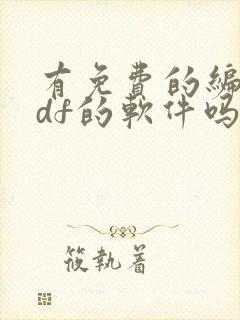 有免费的编
df的软件吗
筱执着